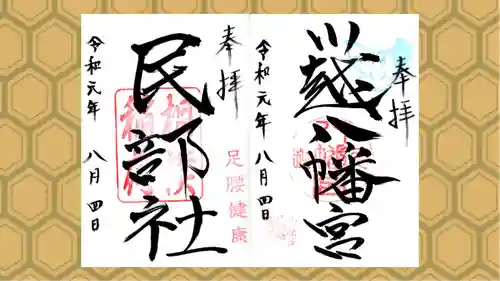 奉拝
川越八幡宮
令和元年 八月 四日
奉拝
民部社
足腰健康
令和元年 八月 四日